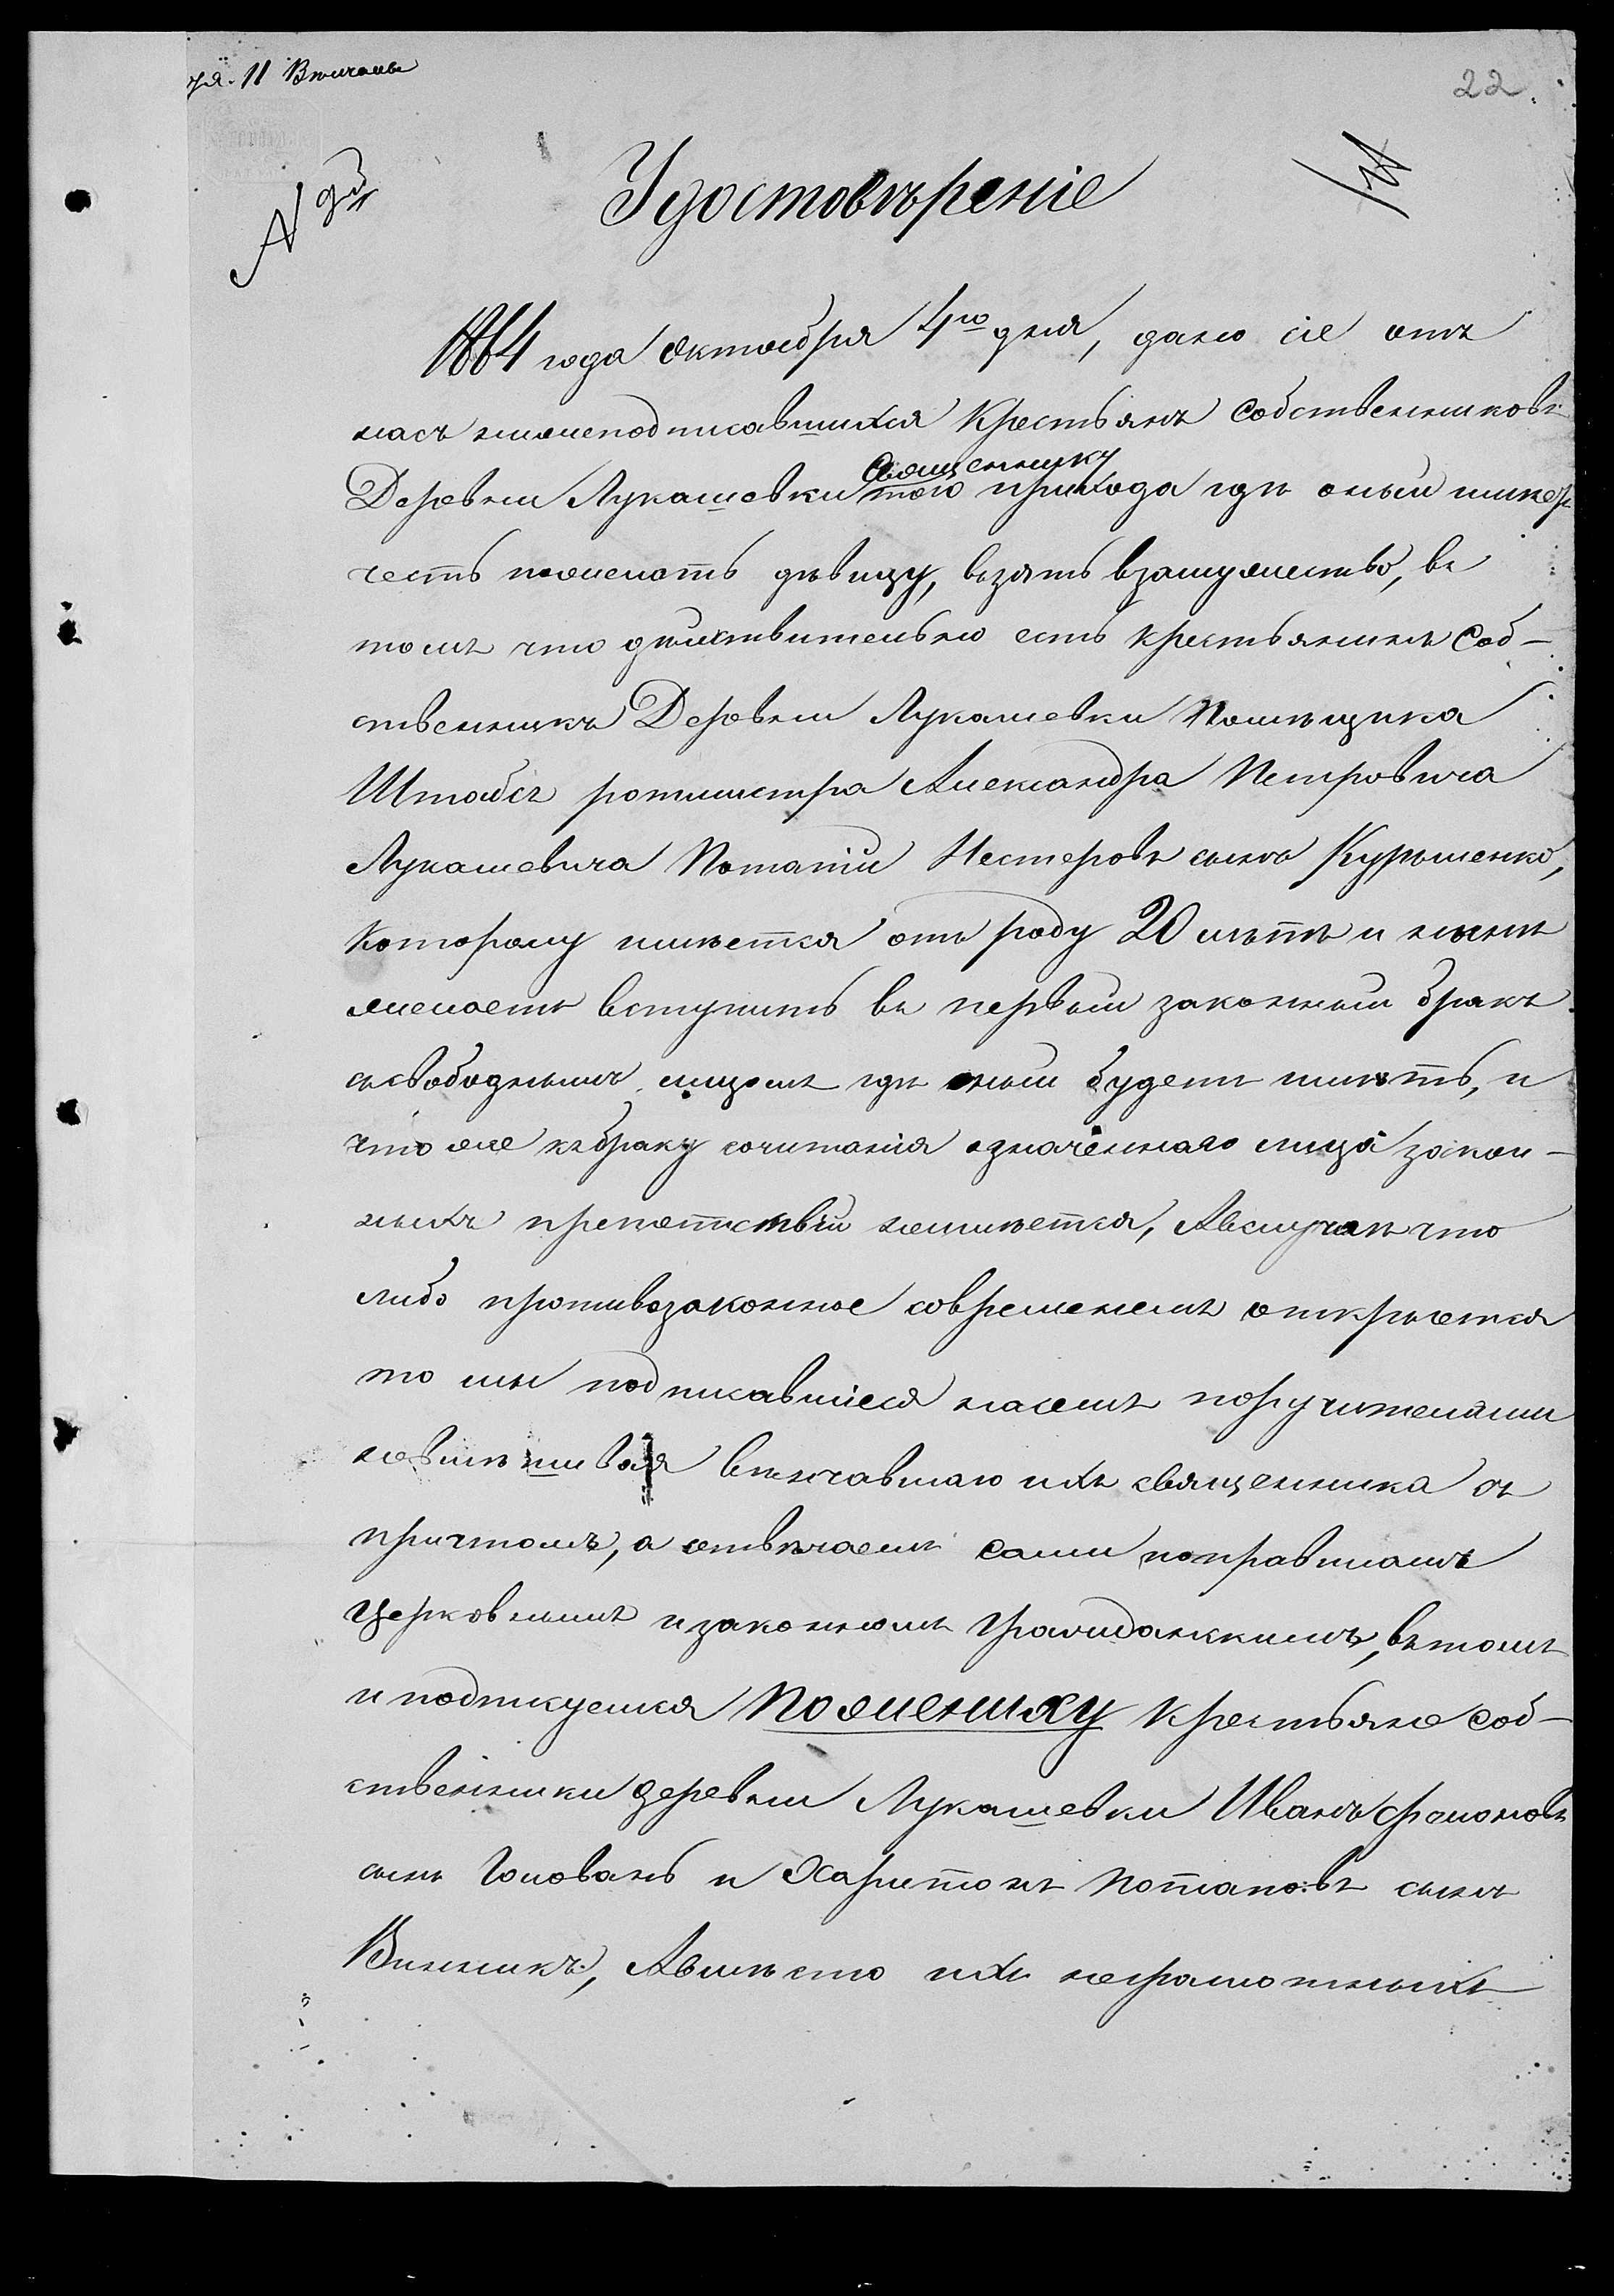 11 Вѣнчаны
22.
Удостовѣреніе
1864 года Октября 4го дня, дано сіе отъ
насъ нижеподписавшихся Крестьянъ Собственниковъ
Священнику
Деревни Лукашевки того прихода гдѣ оный
честь пожелать дѣвицу, взять взамужество, въ
томъ что дѣйствительно есть крестьянинъ Соб-
ственникъ Деревни Лукашевки Помѣщика
Штабсъ ротмистра Александра Петровича
Лукашевича Потапій Нестеровъ сынъ Курыленко,
которому имѣется отъ роду 20 лѣтъ и нынѣ
желаетъ вступить въ первый законный бракъ
съ свободнымъ лицомъ гдѣ оный будетъ имѣть, и
что же къ браку сочитанія означеннаго лица закон-
ныхъ препятствій неимѣется, Авслучаѣ что
либо противозаконное современемъ откроется
то мы подписавшіеся нашемъ поручителями
вѣнчавшаго ихъ священника съ
причтомъ, а отвѣчаемъ сами поправиламъ
Церковнымъ и законномъ Гражданскимъ, въ томъ
и подписуемся По жениху крестьяне Соб-
ственники деревни Лукашевки Иванъ Филоновъ
сынъ Головань и Харитонъ Потаповъ сынъ
Винникъ, Авмѣсто ихъ неграмотныхъ